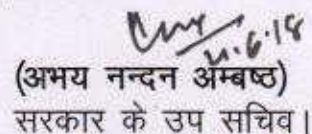 21.6.18
(अभय नन्दन अम्बष्ठ)
सरकार के उप सचिव।